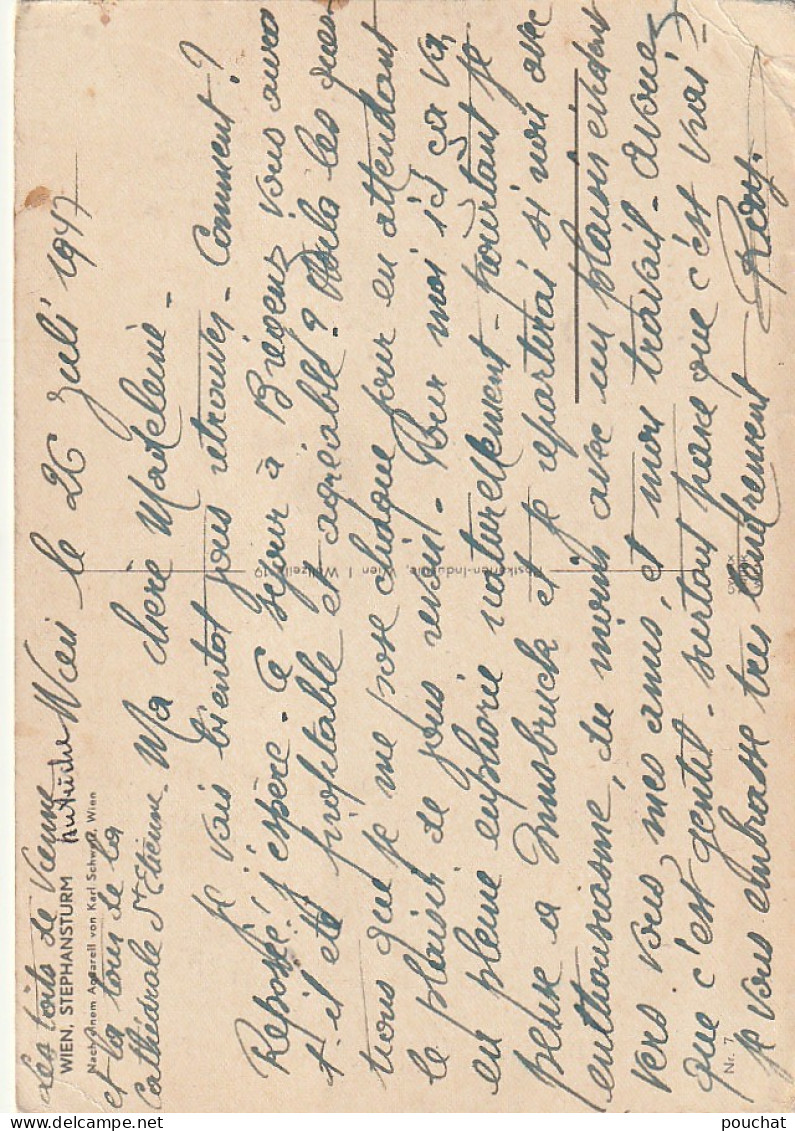 Les toits de Vienne
WIEN, STEPHANSTURM
Nach einem Aquarell von Karl Schwetz, Wien
et la tour de la
Cathédrale St Etienne
Wien le 26 Juli 1947
Ma chère Madeleine -
Je vais bientot vous retrouver - Comment ?
Reposée ! j'espère - Ce séjour à Bregenz vous aura
t-il été profitable et agréable ? Voila les ques
tions que je me pose chaque jour en attendant
le plaisir de vous revoir - Pour moi ici ça va,
en pleine euphorie naturellement - Pourtant je
pense a Innsbruck et je repartirai si non avec
enthousiasme, du moins avec un plaisir evident
vers vous, mes amis, et mon travail - Avouez
que c'est gentil - surtout parce que c'est vrai -
je vous embrasse très tendrement
Postkarten-Industrie, Wien I Wollzeile 19
Nr. 7
pouchat